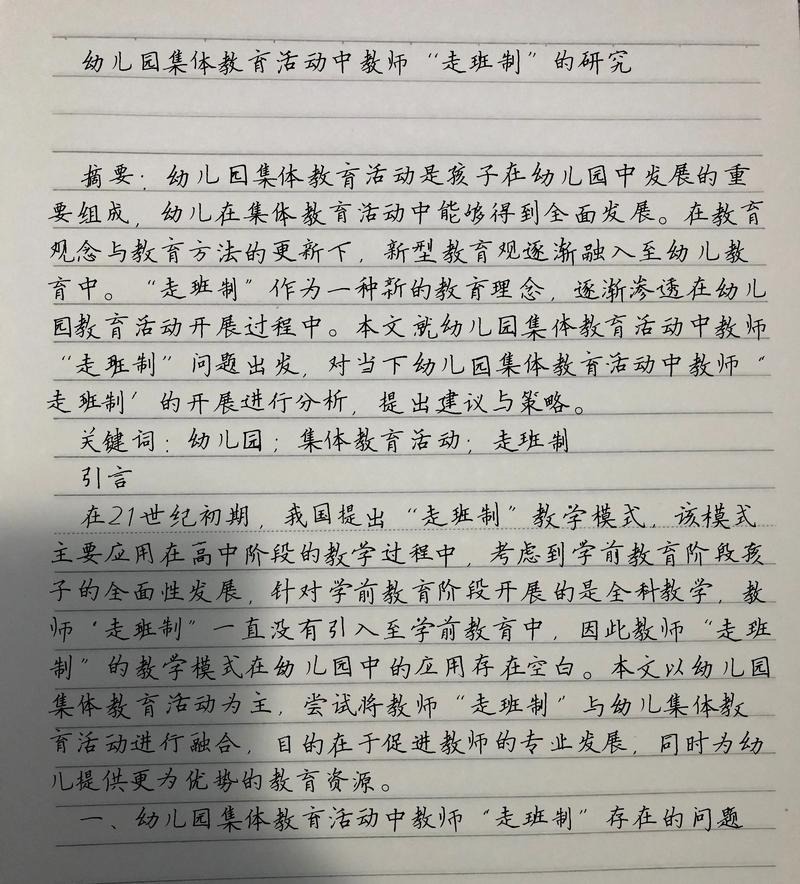 幼儿园集体教育活动中教师“走班制”的研究
摘要：幼儿园集体教育活动是孩子在幼儿园中发展的重
要组成，幼儿在集体教育活动中能够得到全面发展。在教育
观念与教育方法的更新下，新型教育观逐渐融入至幼儿教
育中。“走班制”作为一种新的教育理念，逐渐渗透在幼儿
园教育活动开展过程中。本文就幼儿园集体教育活动中教师
“走班制”问题出发，对当下幼儿园集体教育活动中教师“
走班制’的开展进行分析，提出建议与策略。
关键词：幼儿园；集体教育活动；走班制
引言
在21世纪初期，我国提出“走班制”教学模式，该模式
主要应用在高中阶段的教学过程中，考虑到学前教育阶段孩
子的全面性发展，针对学前教育阶段开展的是全科教学，教
师‘走班制”一直没有引入至学前教育中，因此教师“走班
制”的教学模式在幼儿园中的应用存在空白。本文以幼儿园
集体教育活动为主，尝试将教师“走班制”与幼儿集体教
育活动进行融合，目的在于促进教师的专业发展，同时为幼
儿提供更为优势的教育资源。
一、幼儿园集体教育活动中教师“走班制”存在的问题